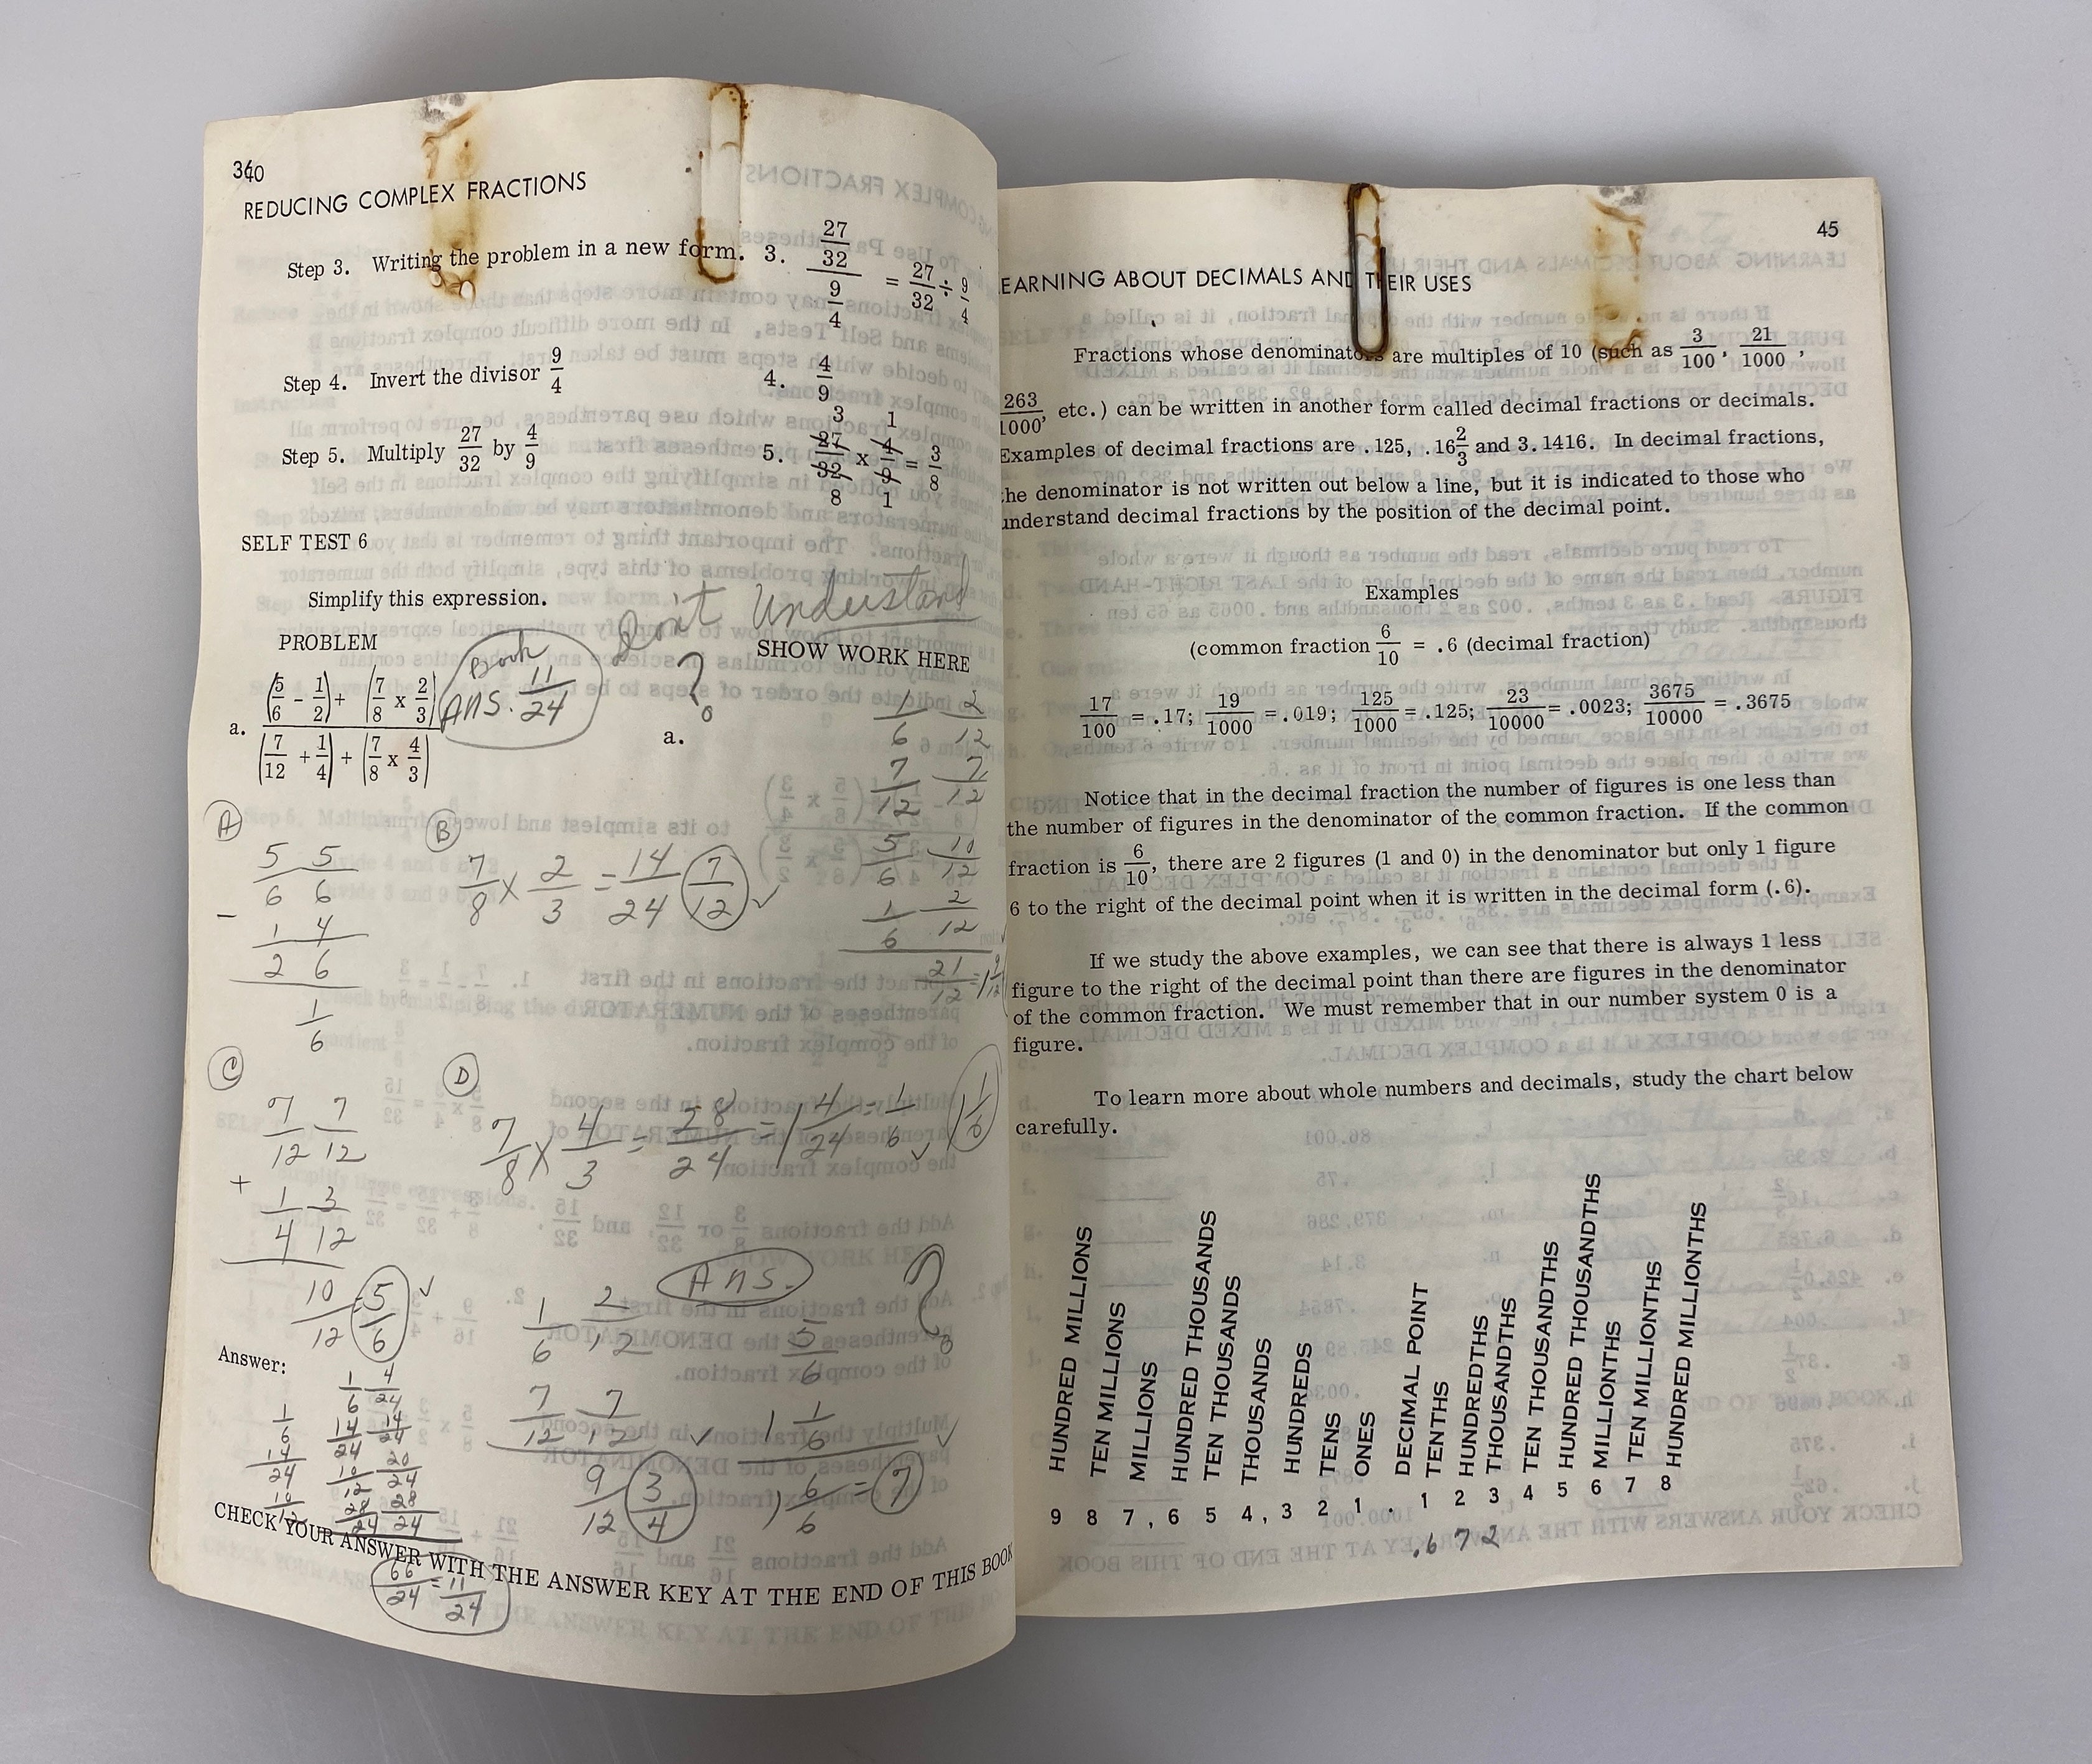 REDUCING COMPLEX FRACTIONS
Step 3. Writing the problem in a new form. 3. 27/32 / 9/4 = 27/32 ÷ 9/4
Step 4. Invert the divisor 9/4 4. 4/9
Step 5. Multiply 27/32 by 4/9 5. 27/32 x 4/9 = 3/8
3 1
8 1
SELF TEST 6
Simplify this expression.
Don't Understand
?
PROBLEM
SHOW WORK HERE
Book
Ans. 11/24
a. (5/6 - 1/2) + (7/8 x 2/3) / (7/12 + 1/4) + (7/8 x 4/3)
a.
1/6 2/12
7/12 7/12
5/6 10/12
1/6 2/12
21/12 = 1 9/12
A
5/6 5/6
-
1/2 4/6
1/6
B
7/8 x 2/3 = 14/24 7/12 ✓
C
7/12 7/12
+
1/4 3/12
10/12 = 5/6 ✓
D
7/8 x 4/3 = 28/24 = 1 4/24 = 1/6 ✓ 1 1/6
Ans. ?
1/6 2/12
7/12 7/12 ✓
9/12 3/4
5/6
1 1/6 ✓
1 6/6 = 7
Answer:
1/6
14/24
10/12
1/6 4/24
14/24 14/24
10/12 20/24
28/24 28/24
66/24 = 11/24
CHECK YOUR ANSWER WITH THE ANSWER KEY AT THE END OF THIS BOOK
45
EARNING ABOUT DECIMALS AND THEIR USES
Fractions whose denominators are multiples of 10 (such as 3/100, 21/1000,
263/1000, etc.) can be written in another form called decimal fractions or decimals.
Examples of decimal fractions are .125, .16 2/3 and 3.1416. In decimal fractions,
the denominator is not written out below a line, but it is indicated to those who
understand decimal fractions by the position of the decimal point.
Examples
(common fraction 6/10 = .6 (decimal fraction)
17/100 = .17; 19/1000 = .019; 125/1000 = .125; 23/10000 = .0023; 3675/10000 = .3675
Notice that in the decimal fraction the number of figures is one less than
the number of figures in the denominator of the common fraction. If the common
fraction is 6/10, there are 2 figures (1 and 0) in the denominator but only 1 figure
6 to the right of the decimal point when it is written in the decimal form (.6).
If we study the above examples, we can see that there is always 1 less
figure to the right of the decimal point than there are figures in the denominator
of the common fraction. We must remember that in our number system 0 is a
figure.
To learn more about whole numbers and decimals, study the chart below
carefully.
HUNDRED MILLIONS
TEN MILLIONS
MILLIONS
HUNDRED THOUSANDS
TEN THOUSANDS
THOUSANDS
HUNDREDS
TENS
ONES
DECIMAL POINT
TENTHS
HUNDREDTHS
THOUSANDTHS
TEN THOUSANDTHS
HUNDRED THOUSANDTHS
MILLIONTHS
TEN MILLIONTHS
HUNDRED MILLIONTHS
9 8 7, 6 5 4, 3 2 1 . 1 2 3 4 5 6 7 8
.672